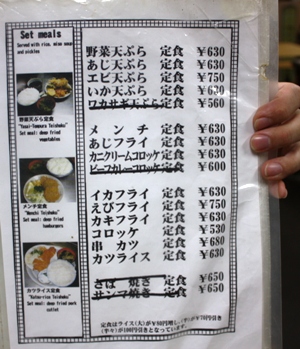 Set meals
Served with rice, miso soup
and pickles
野菜天ぷら定食
"Yasai-Tempura Teishoku"
Set meal: deep fried
vegetables
メンチ定食
"Menchi Teishoku"
Set meal: deep fried
hamburgers
カツライス定食
"Katsu-rice Teishoku"
Set meal: deep fried pork
cutlet
野菜天ぷら 定食 ¥630
あじ天ぷら 定食 ¥630
エビ天ぷら 定食 ¥750
いか天ぷら 定食 ¥630
ワカサギ天ぷら 定食 ¥560
メンチ 定食 ¥630
あじフライ 定食 ¥630
カニクリームコロッケ 定食 ¥630
ビーフカレーコロッケ 定食 ¥600
イカフライ 定食 ¥630
えびフライ 定食 ¥750
カキフライ 定食 ¥630
コロッケ 定食 ¥530
串カツ 定食 ¥680
カツライス 定食 ¥630
さば焼き 定食 ¥650
サンマ焼き 定食 ¥650
定食はライス(大)が
となっています。